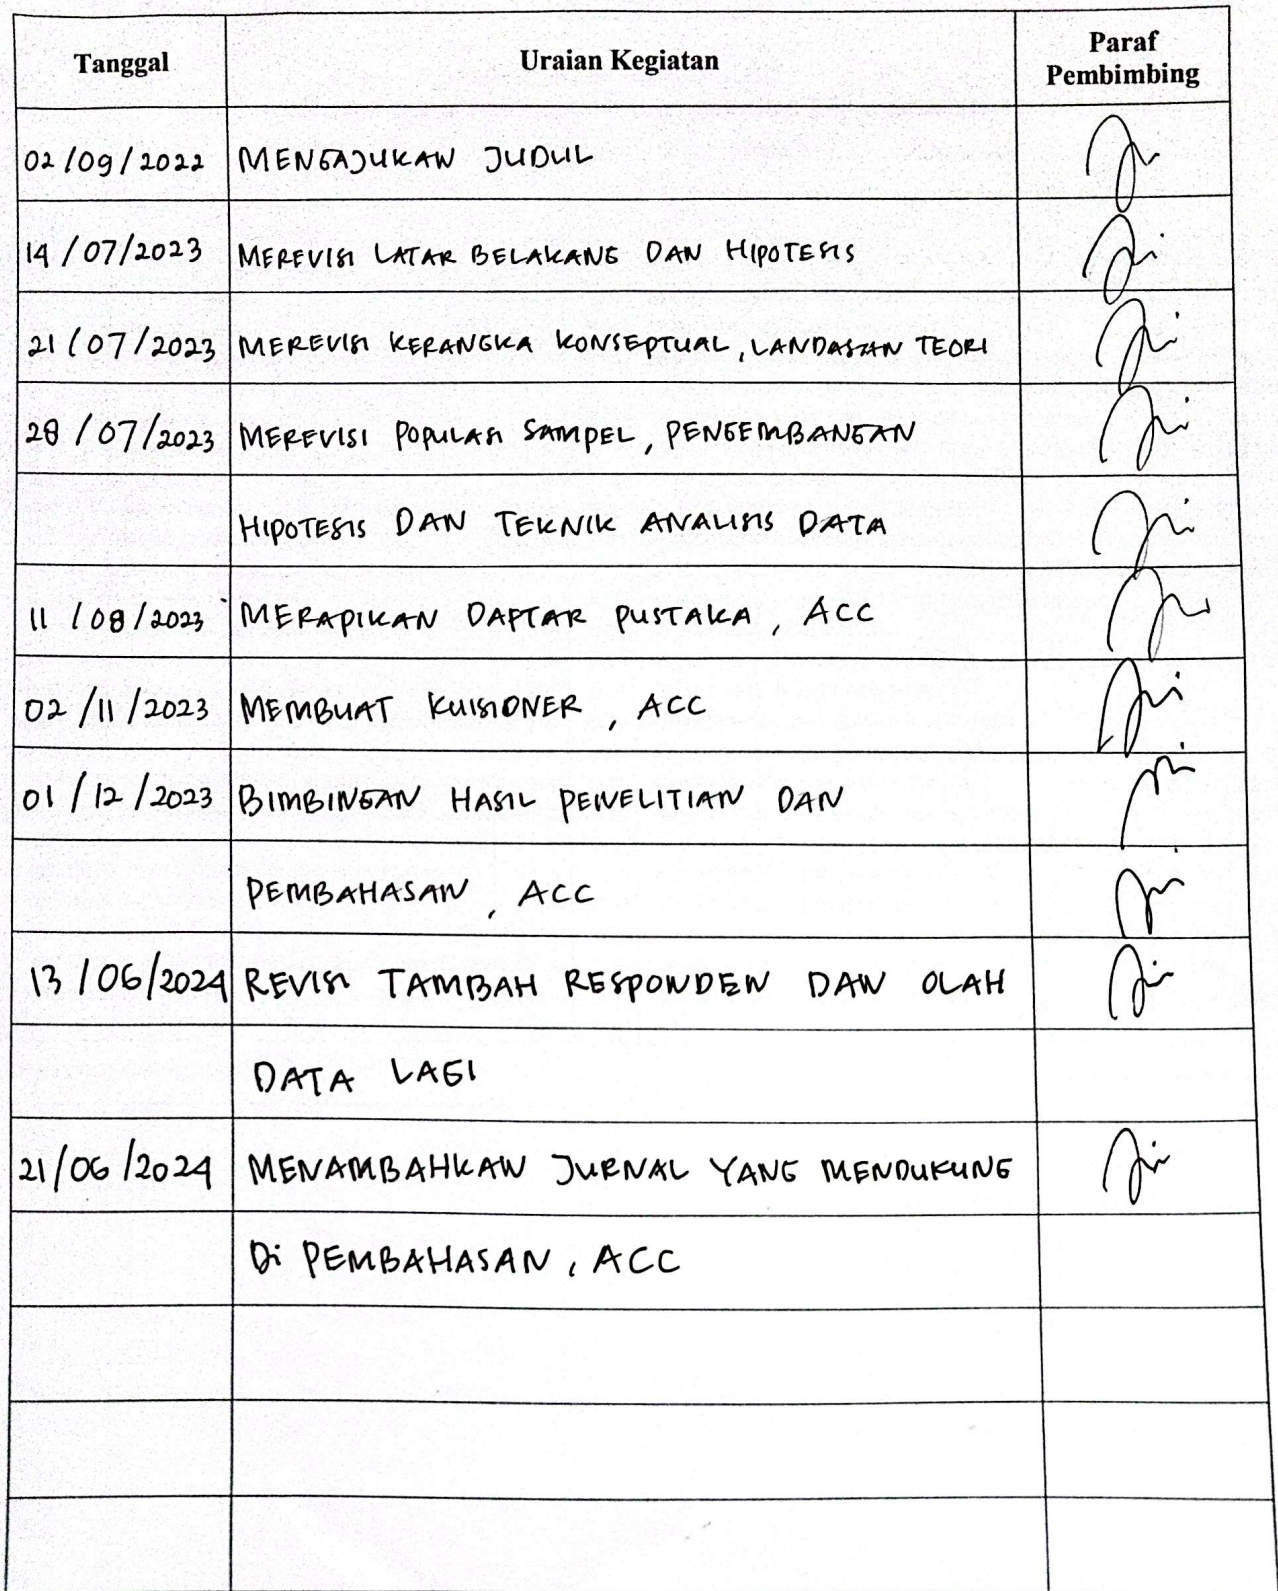 Tanggal Uraian Kegiatan Paraf Pembimbing
02/09/2022 MENGAJUKAN JUDUL
14/07/2023 MEREVISI LATAR BELAKANG DAN HIPOTESIS
21/07/2023 MEREVISI KERANGKA KONSEPTUAL, LANDASAN TEORI
28/07/2023 MEREVISI POPULASI SAMPEL, PENGEMBANGAN
HIPOTESIS DAN TEKNIK ANALISIS DATA
11/08/2023 MERAPIKAN DAFTAR PUSTAKA, ACC
02/11/2023 MEMBUAT KUISIONER, ACC
01/12/2023 BIMBINGAN HASIL PENELITIAN DAN
PEMBAHASAN, ACC
13/06/2024 REVISI TAMBAH RESPONDEN DAN OLAH
DATA LAGI
21/06/2024 MENAMBAHKAN JURNAL YANG MENDUKUNG
Di PEMBAHASAN, ACC